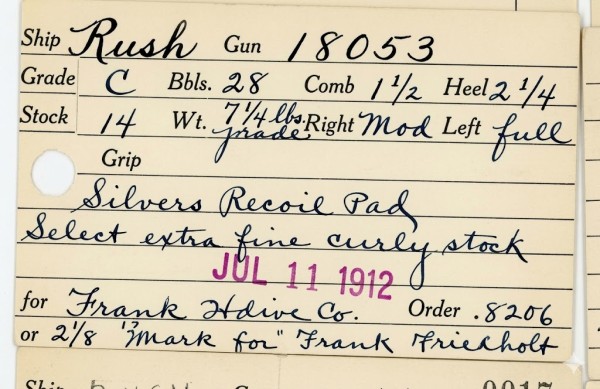 Ship Rush Gun 18053
Grade C Bbls. 28 Comb 1 1/2 Heel 2 1/4
Stock 14 Wt. 7 1/4 lbs. grade Right Mod Left full
Grip
Silvers Recoil Pad
Select extra fine curly stock
JUL 11 1912
for Frank Hdive Co. Order .8206
or 2 1/8 "Mark for" Frank Friedholt
Ship